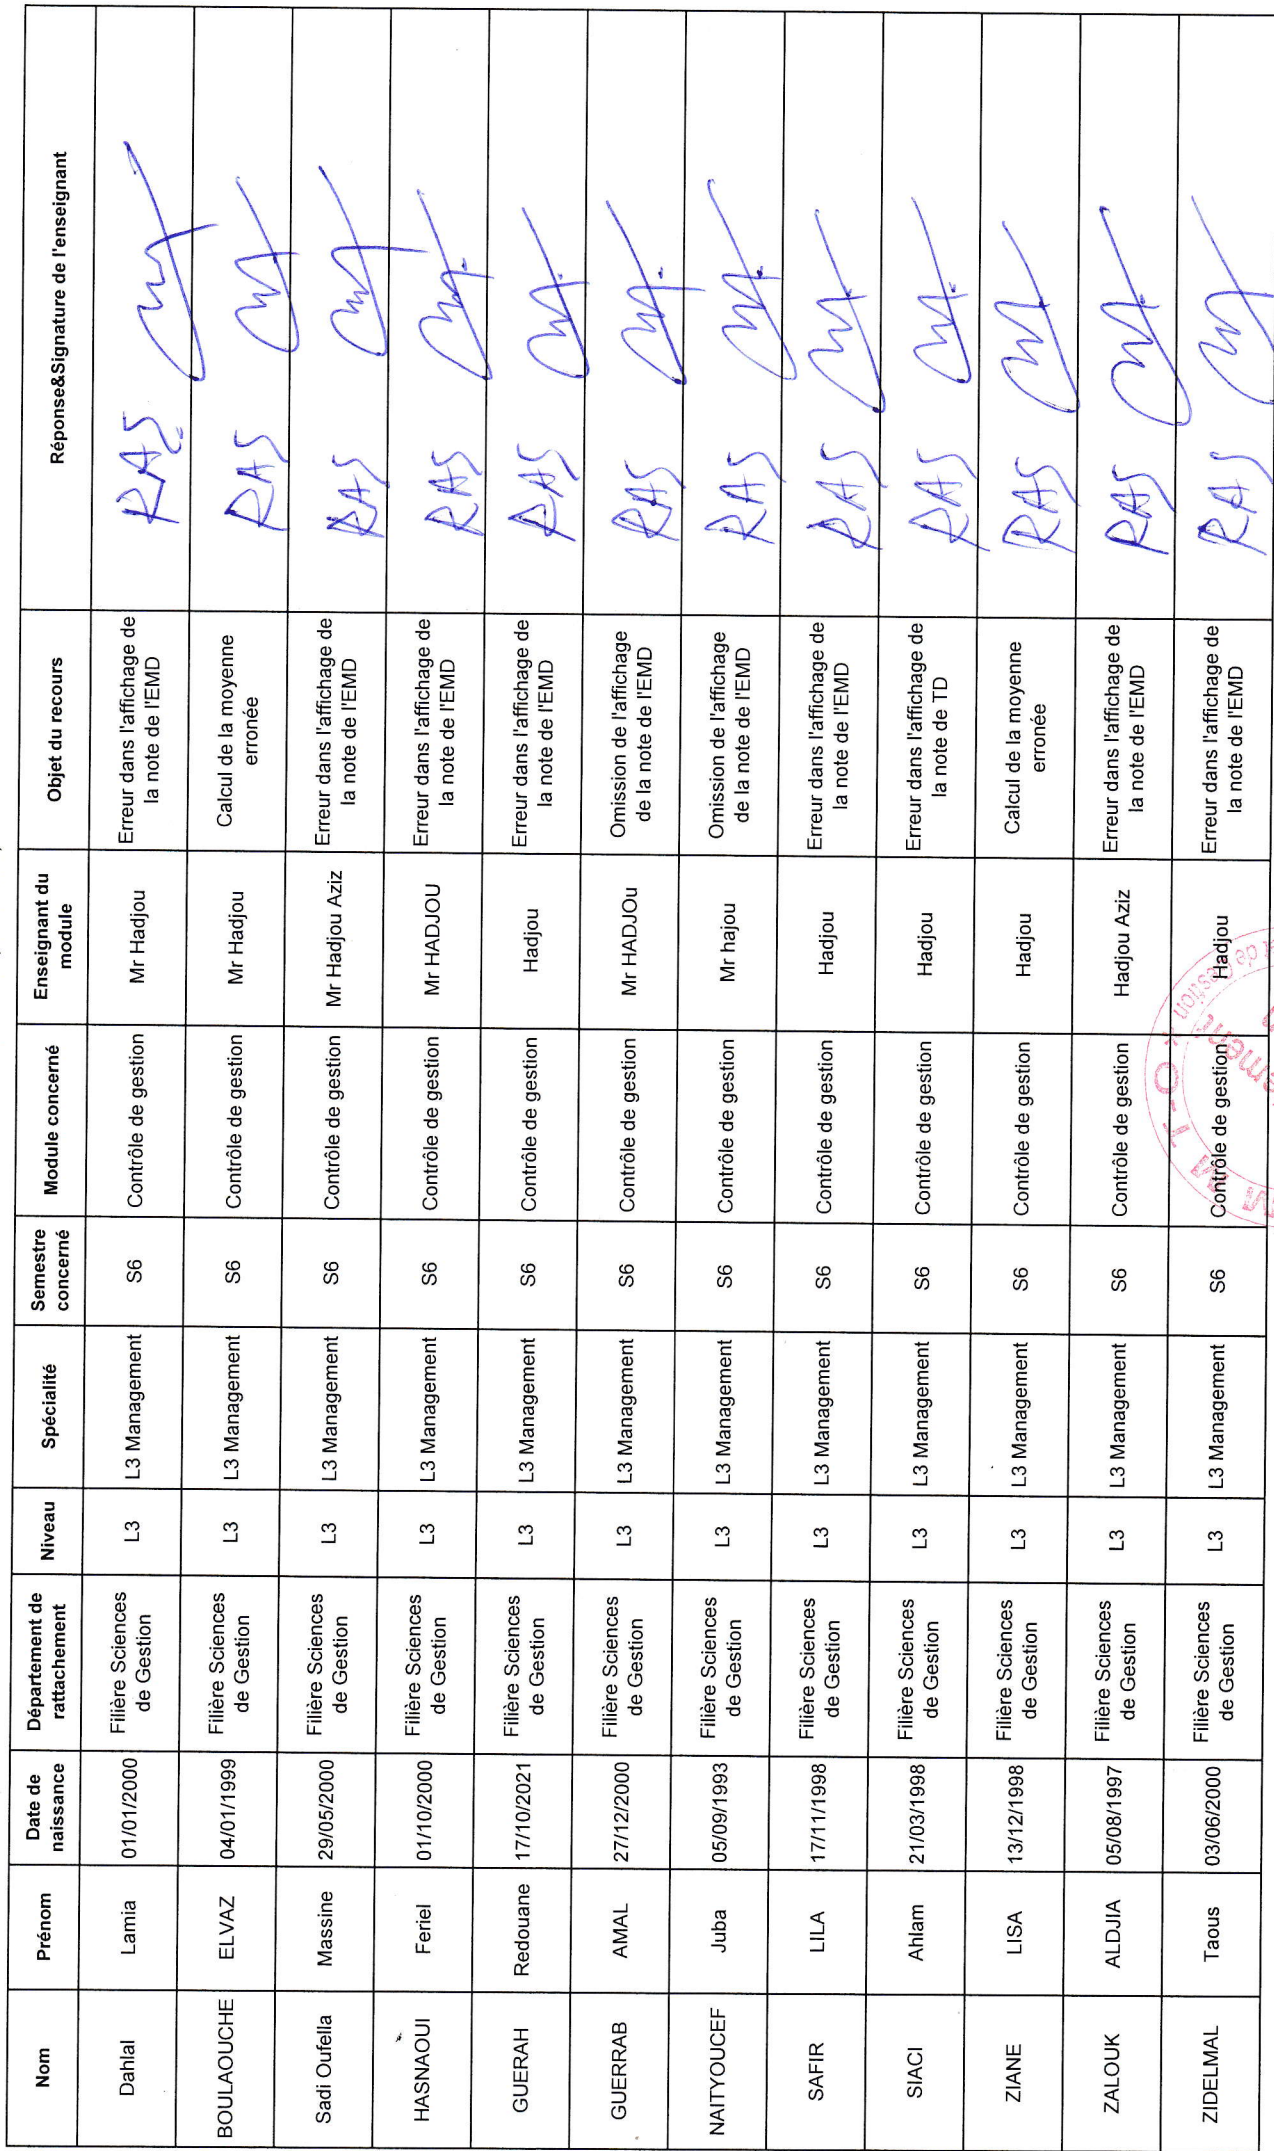 Nom Prénom Date de naissance Département de rattachement Niveau Spécialité Semestre concerné Module concerné Enseignant du module Objet du recours Réponse&Signature de l'enseignant
Dahlal Lamia 01/01/2000 Filière Sciences de Gestion L3 L3 Management S6 Contrôle de gestion Mr Hadjou Erreur dans l'affichage de la note de l'EMD RAS
BOULAOUCHE ELVAZ 04/01/1999 Filière Sciences de Gestion L3 L3 Management S6 Contrôle de gestion Mr Hadjou Calcul de la moyenne erronée RAS
Sadi Oufella Massine 29/05/2000 Filière Sciences de Gestion L3 L3 Management S6 Contrôle de gestion Mr Hadjou Aziz Erreur dans l'affichage de la note de l'EMD RAS
HASNAOUI Feriel 01/10/2000 Filière Sciences de Gestion L3 L3 Management S6 Contrôle de gestion Mr HADJOU Erreur dans l'affichage de la note de l'EMD RAS
GUERAH Redouane 17/10/2021 Filière Sciences de Gestion L3 L3 Management S6 Contrôle de gestion Hadjou Erreur dans l'affichage de la note de l'EMD RAS
GUERRAB AMAL 27/12/2000 Filière Sciences de Gestion L3 L3 Management S6 Contrôle de gestion Mr HADJOu Omission de l'affichage de la note de l'EMD RAS
NAITYOUCEF Juba 05/09/1993 Filière Sciences de Gestion L3 L3 Management S6 Contrôle de gestion Mr hajou Omission de l'affichage de la note de l'EMD RAS
SAFIR LILA 17/11/1998 Filière Sciences de Gestion L3 L3 Management S6 Contrôle de gestion Hadjou Erreur dans l'affichage de la note de l'EMD RAS
SIACI Ahlam 21/03/1998 Filière Sciences de Gestion L3 L3 Management S6 Contrôle de gestion Hadjou Erreur dans l'affichage de la note de TD RAS
ZIANE LISA 13/12/1998 Filière Sciences de Gestion L3 L3 Management S6 Contrôle de gestion Hadjou Calcul de la moyenne erronée RAS
ZALOUK ALDJIA 05/08/1997 Filière Sciences de Gestion L3 L3 Management S6 Contrôle de gestion Hadjou Aziz Erreur dans l'affichage de la note de l'EMD RAS
ZIDELMAL Taous 03/06/2000 Filière Sciences de Gestion L3 L3 Management S6 Contrôle de gestion Hadjou Erreur dans l'affichage de la note de l'EMD RAS